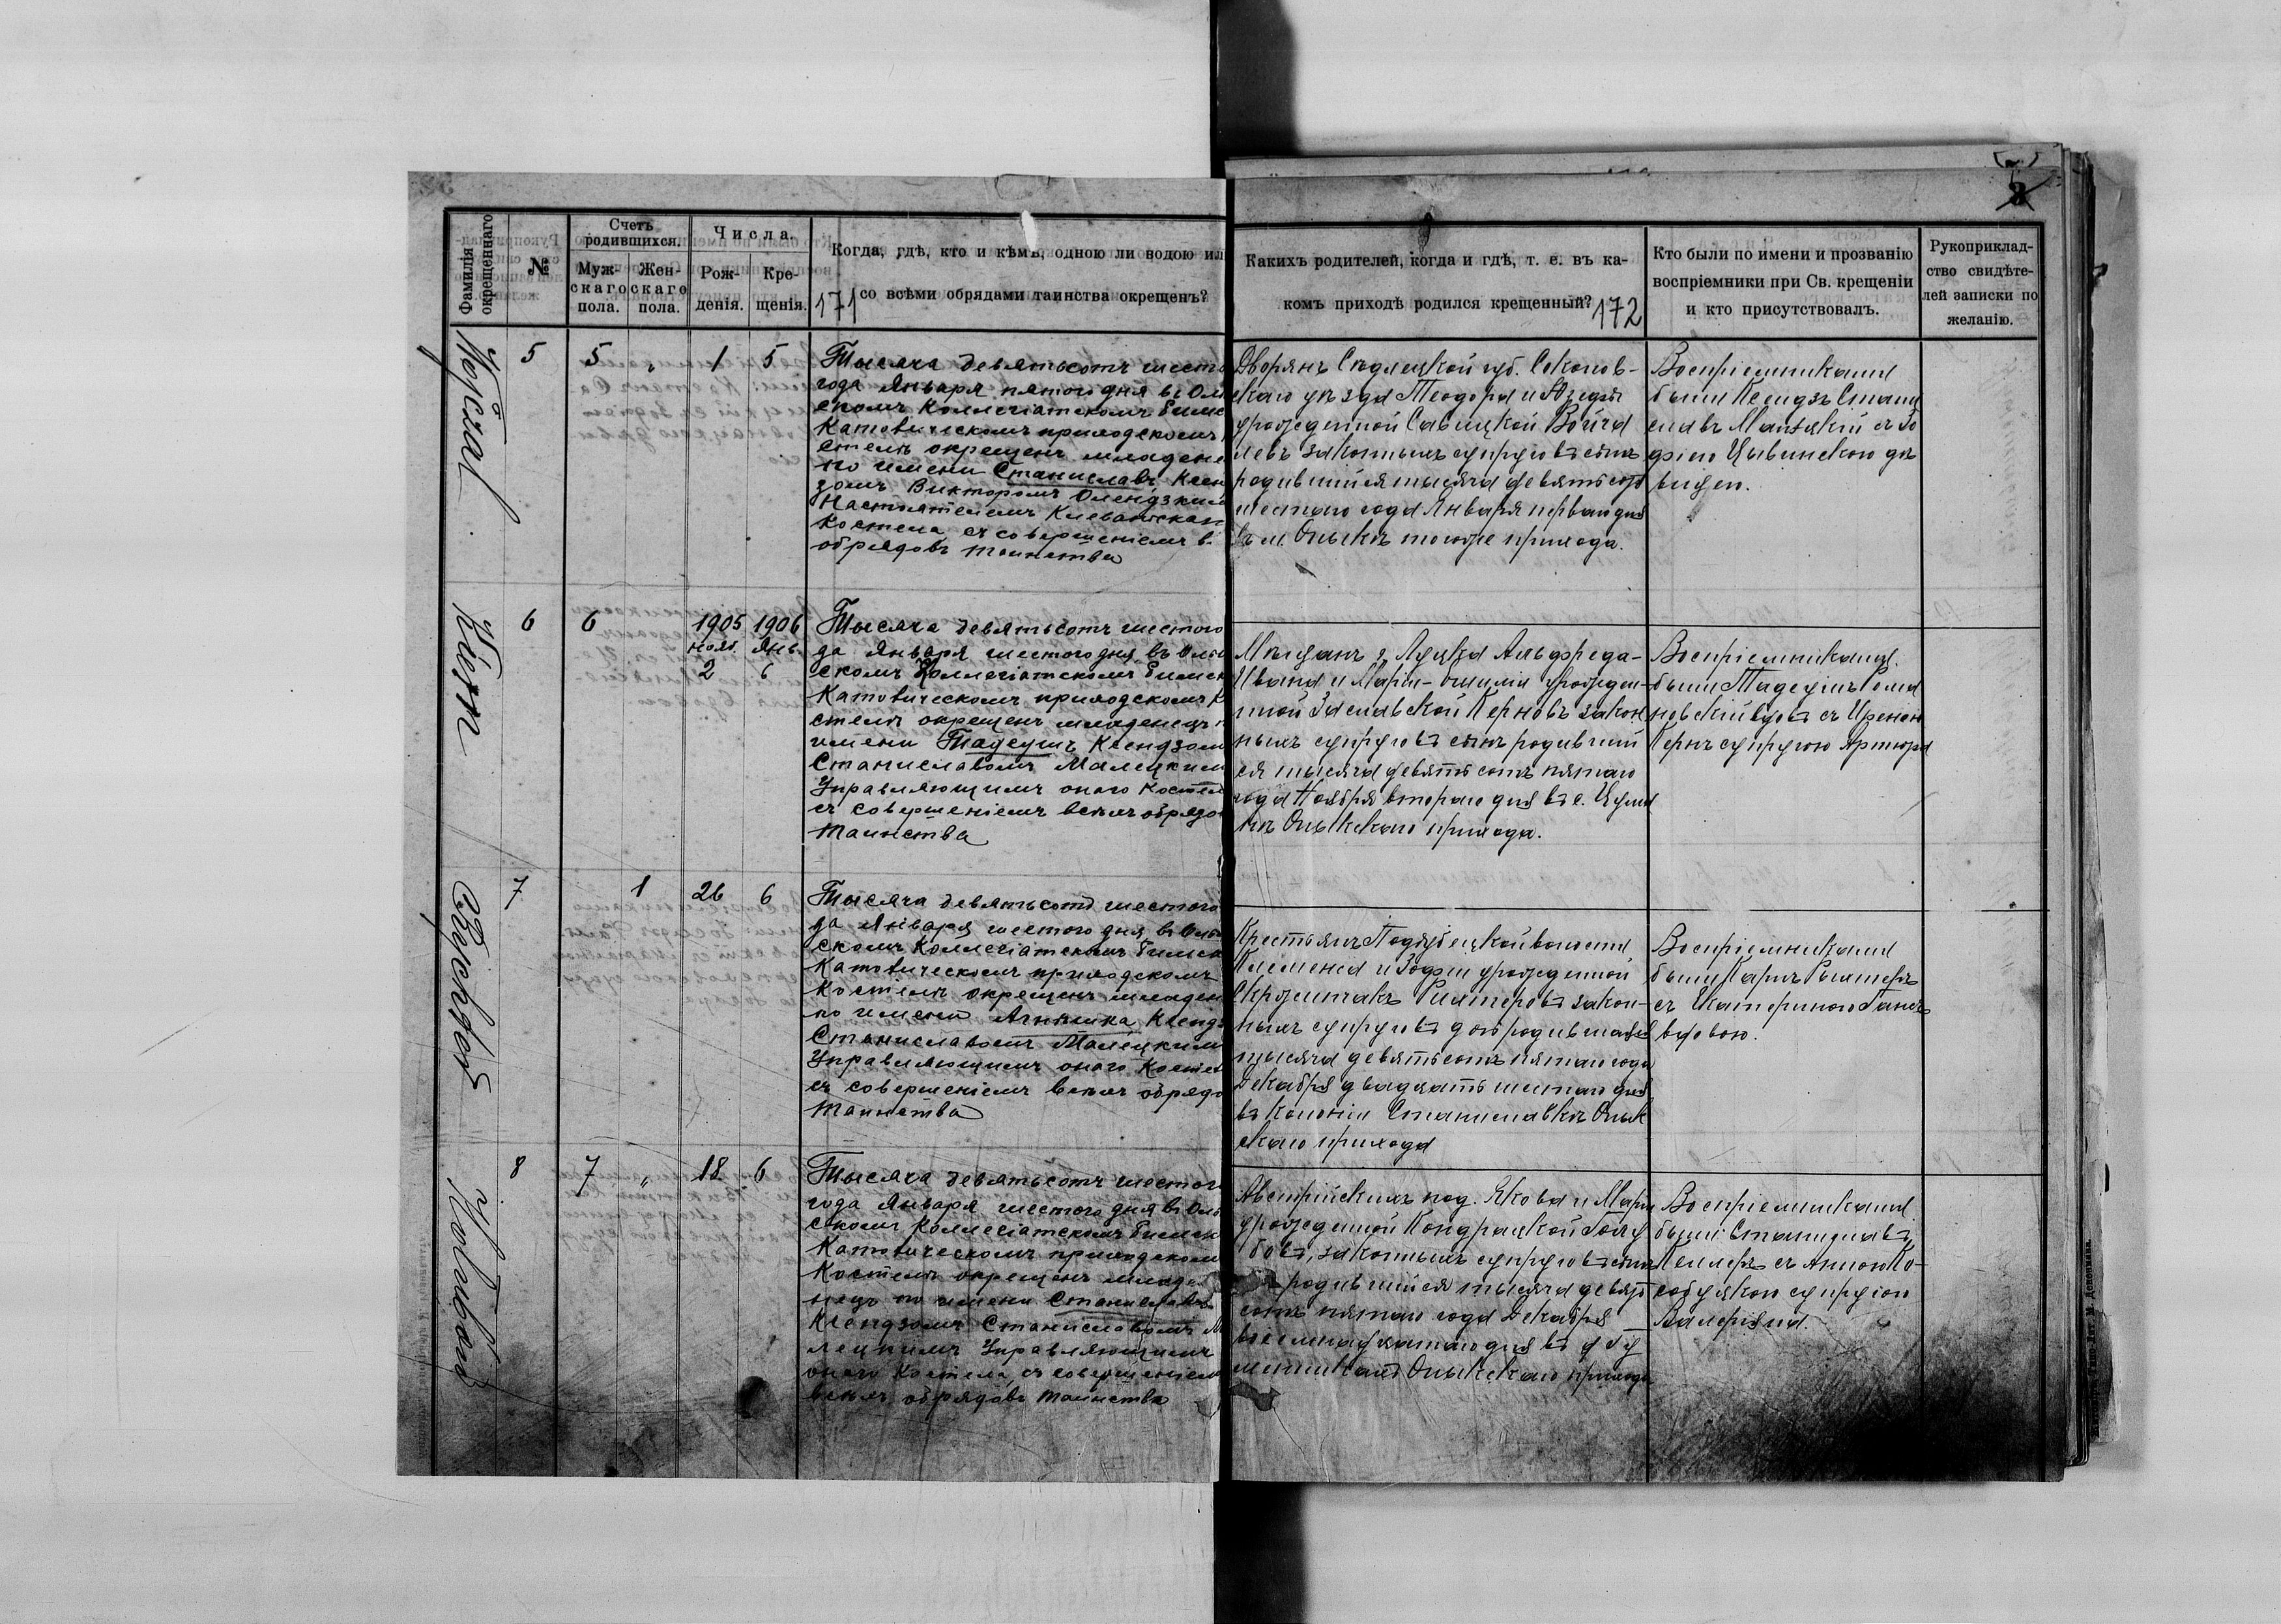 171
172
3
Фамилія окрещеннаго
№
Счетъ родившихся.
Муж-
скаго
пола.
Жен-
скаго
пола.
Числа.
Рож-
денія.
Кре-
щенія.
Когда, гдѣ, кто и кѣмъ, одною ли водою ил
со всѣми обрядами таинства окрещенъ?
Какихъ родителей, когда и гдѣ, т. е. въ ка-
комъ приходѣ родился крещенный?
Кто были по имени и прозванію
воспріемники при Св. крещеніи
и кто присутствовалъ.
Рукоприклад-
ство свидѣте-
лей записки по
желанію.
5
5
"
1
5
Тысяча девятьсотъ шест
года Января пятого дня въ Олы
скомъ Коллегіатскомъ Римс
Католическомъ приходскомъ
стелѣ окрещенъ младене
по имени Станиславъ Ксен
зомъ Викторомъ Олендзким
Настоятелемъ Клеванскаг
Костела съ совершеніемъ в.
обрядовъ таинства
Дворянъ Сѣдлецкой губ. Соколов-
скаго уѣзда Теодора и
урожденной Савицкой
законныхъ супруговъ сынъ
родившійся тысяча девятьсотъ
шестаго года Января перваго дня
въ м. Олыкѣ того же прихода.
Воспріемниками
были Ксендзъ Стани
славъ съ Зо
фіею
вицею.
6
6
1905
нояб.
2
1906
Янв.
6
Тысяча девятьсотъ шестого
да Января шестого дня въ Олы
скомъ Коллегіатскомъ Римск
Католическомъ приходскомъ К
стелѣ окрещенъ младенецъ п
имени Тадеушъ Ксендзом
Станиславомъ Малецким
Управляющимъ оного Костел
съ совершеніемъ всѣхъ обрядо
таинства
Мѣщанъ г. Луцка Альфреда-
Ивана и Маріи-Эмиліи урожден-
ной Заславской Керновъ закон
ныхъ супруговъ сынъ родивший
ся тысяча девятьсотъ пятаго
года Ноября второго дня въ с. Цума
нѣ Олыкскаго прихода.
Воспріемниками
были Тадеушъ Рома
новскій вдовъ съ Иреною
Кернъ супругою Артюра
7
1
26
6
Тысяча девятьсотъ шестого
да Января шестого дня въ Олы
скомъ Коллегіатскомъ Римск
Католическомъ приходскомъ
Костелѣ окрещенъ младен
по имени Агнешка Ксендз
Станиславомъ Малецким
Управляющимъ оного Костел
съ совершеніемъ всѣхъ обрядо
таинства
Крестьянъ Поддубецкой волости
Клеменса и Зофіи урожденной
Рихтеровъ закон-
ныхъ супруговъ дочь родившаяся
тысяча девятьсотъ пятаго года
Декабря двадцать шестаго дня
въ колоніи Станиславкѣ Олык
скаго прихода
Воспріемниками
были Карлъ Рихтеръ
съ Катериною Ганчъ
вдовою.
8
7
"
18
6
Тысяча девятьсотъ шестог
года Января шестого дня въ Олы
скомъ Коллегіатскомъ Римск
Католическомъ приходском
Костелѣ окрещенъ младе
нецъ по имени Станиславъ
Ксендзомъ Станиславомъ Ма
лецкимъ Управляющимъ
оного Костела, съ совершеніем
всѣхъ обрядовъ таинства
Австрійскихъ под. Якова и Маріи
урожденной Кондрацкой Голу
бовъ, законныхъ супруговъ сынъ
родившійся тысяча девять
сотъ пятаго года Декабря
восемнадцатаго дня въ
Олыкскаго прихода
Воспріемниками
были Станиславъ
Келлеръ съ Анною Ко-
супругою
Валеріана.